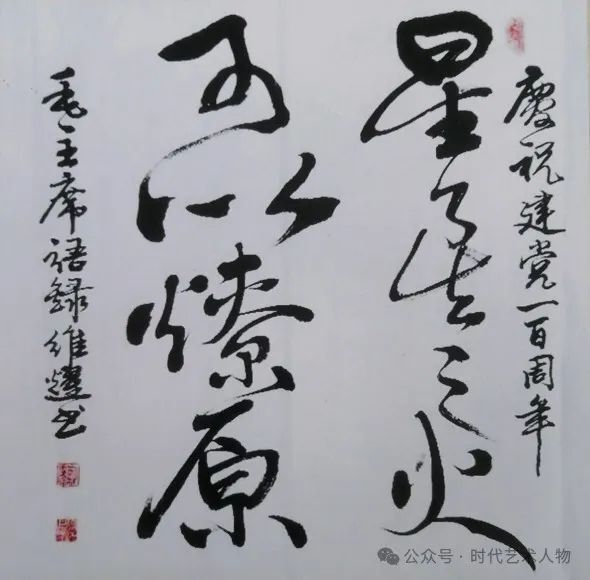 慶祝建党一百周年
星星之火
可以燎原
毛主席語録維燿书
公众号·时代艺术人物